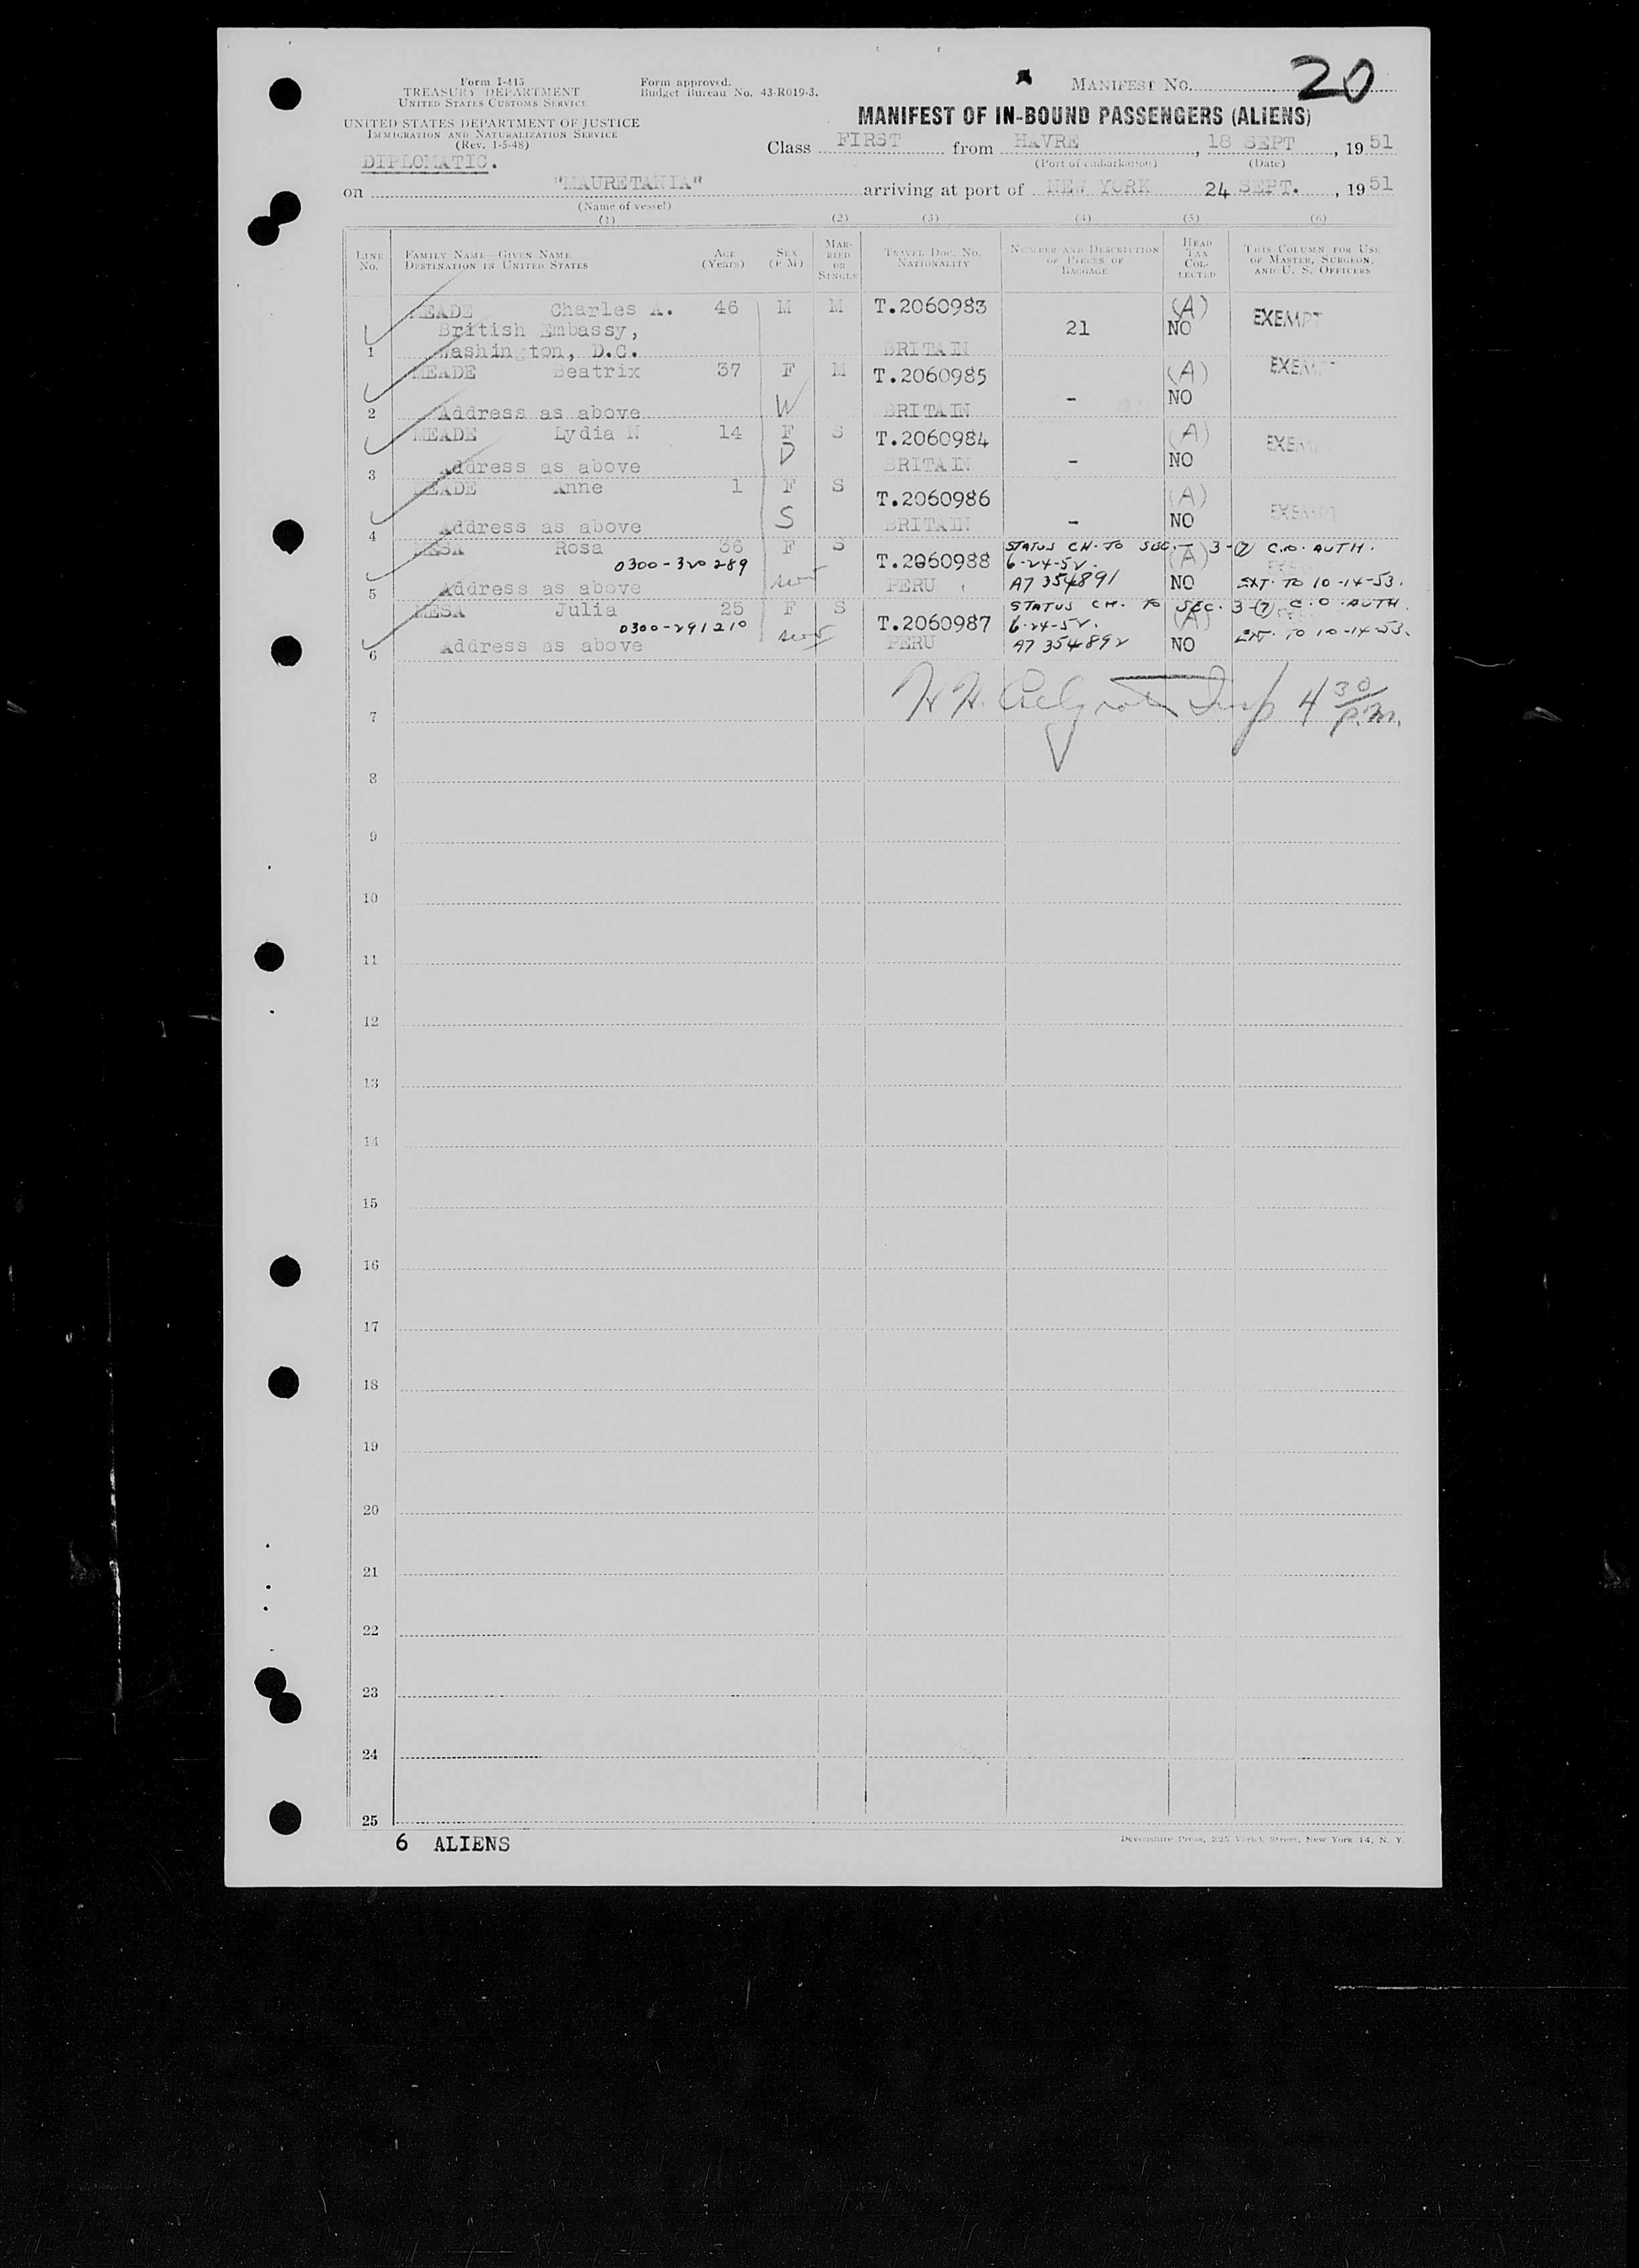 Form I-415
TREASURY DEPARTMENT
UNITED STATES CUSTOMS SERVICE
Form approved.
Budget Bureau No. 43-R019-3.
MANIFEST NO. 20
UNITED STATES DEPARTMENT OF JUSTICE
IMMIGRATION AND NATURALIZATION SERVICE
(Rev. 1-5-48)
DIPLOMATIC.
MANIFEST OF IN-BOUND PASSENGERS (ALIENS)
Class FIRST from HAVRE, 18 SEPT, 1951
(Port of embarkation) (Date)
on "MAURETANIA" arriving at port of NEW YORK 24 SEPT., 1951
(Name of vessel)
(1) (2) (3) (4) (5) (6)
LINE NO.
FAMILY NAME—GIVEN NAME
DESTINATION IN UNITED STATES
AGE (Years)
SEX (F M)
MARRIED OR SINGLE
TRAVEL DOC. NO. NATIONALITY
NUMBER AND DESCRIPTION OF PIECES OF BAGGAGE
HEAD TAX COLLECTED
THIS COLUMN FOR USE OF MASTER, SURGEON, AND U. S. OFFICERS
MEADE Charles A. 46 M M T.2060983 (A) EXEMPT
British Embassy, 21 NO
1 Washington, D.C. BRITAIN
MEADE Beatrix 37 F M T.2060985 (A) EXEMPT
- NO
2 Address as above W BRITAIN
MEADE Lydia N 14 F S T.2060984 (A) EXEMPT
D
3 Address as above BRITAIN - NO
MEADE Anne 1 F S T.2060986 (A) EXEMPT
4 Address as above S BRITAIN - NO
MESA Rosa 36 F S STATUS CH. TO SEC. 3-(7) C.O. AUTH.
0300-320289 T.2060988 6-24-52. (A)
5 Address as above PERU A7 354891 NO EXT. TO 10-14-53.
MESA Julia 25 F S STATUS CH. TO SEC. 3-(7) C.O. AUTH.
0300-291210 T.2060987 6-24-52. (A) EXT. TO 10-14-53.
6 Address as above PERU A7 354892 NO
Insp 4 30/P.M.
7
8
9
10
11
12
13
14
15
16
17
18
19
20
21
22
23
24
25
6 ALIENS
Devonshire Press, 225 Varick Street, New York 14, N. Y.